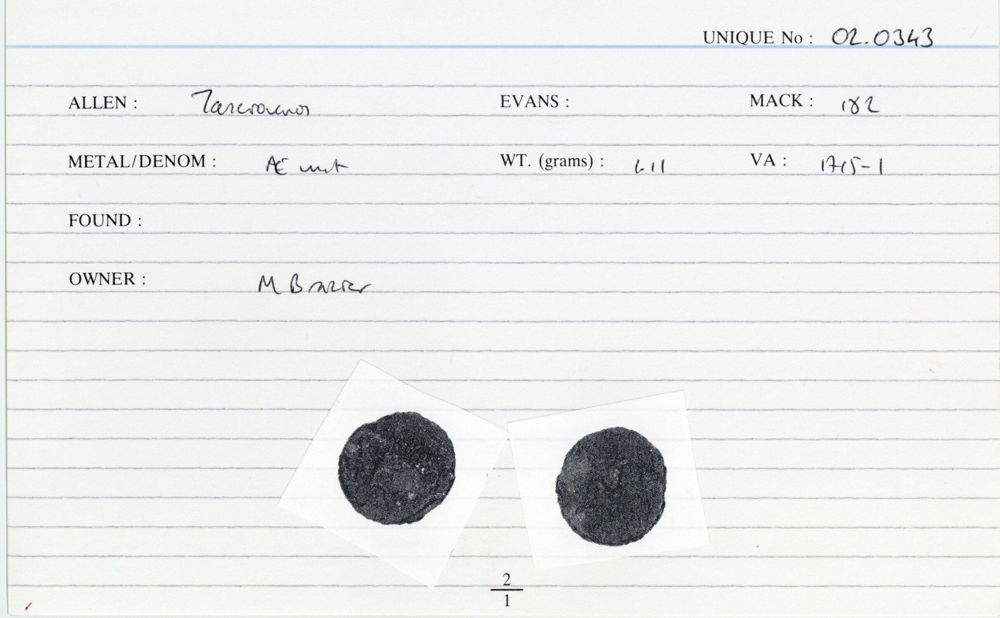 UNIQUE No : 02.0343
ALLEN : Tasciovanos EVANS : MACK : 182
METAL/DENOM : Æ unit WT. (grams) : 1.11 VA : 1715-1
FOUND :
OWNER : M Brazier
2
1